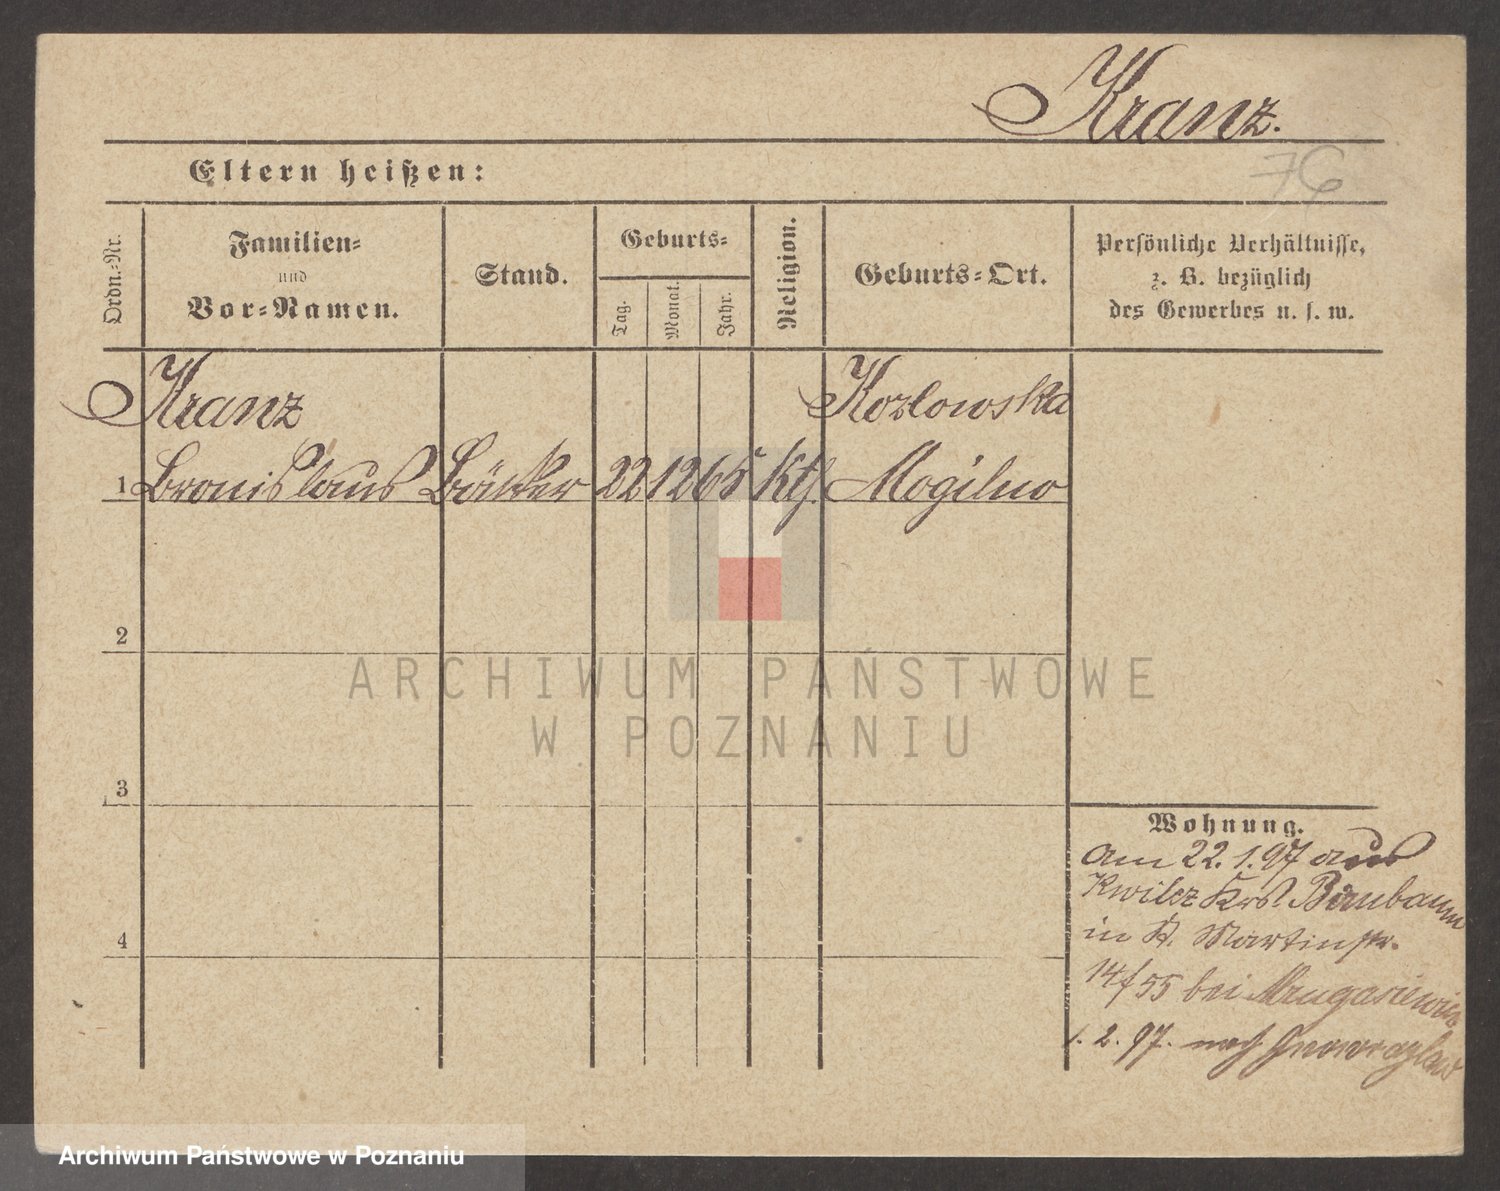 Kranz.
76
Eltern heißen:
Ordn.-Nr.
Familien-
und
Vor-Namen.
Stand.
Geburts-
Tag.
Monat.
Jahr.
Religion.
Geburts-Ort.
Persönliche Verhältnisse,
z. B. bezüglich
des Gewerbes u. s. w.
Kranz
Kozlowska
1 Bronislaus Bäcker 22 12 65 Kth. Mogilno
2
3
4
Wohnung.
Am 22.1.97 aus
Kwilcz Krs. Birnbaum
in St. Martinstr.
14/55 bei
1. 2. 97. nach Inowrazlaw
ARCHIWUM PAŃSTWOWE
W POZNANIU
Archiwum Państwowe w Poznaniu